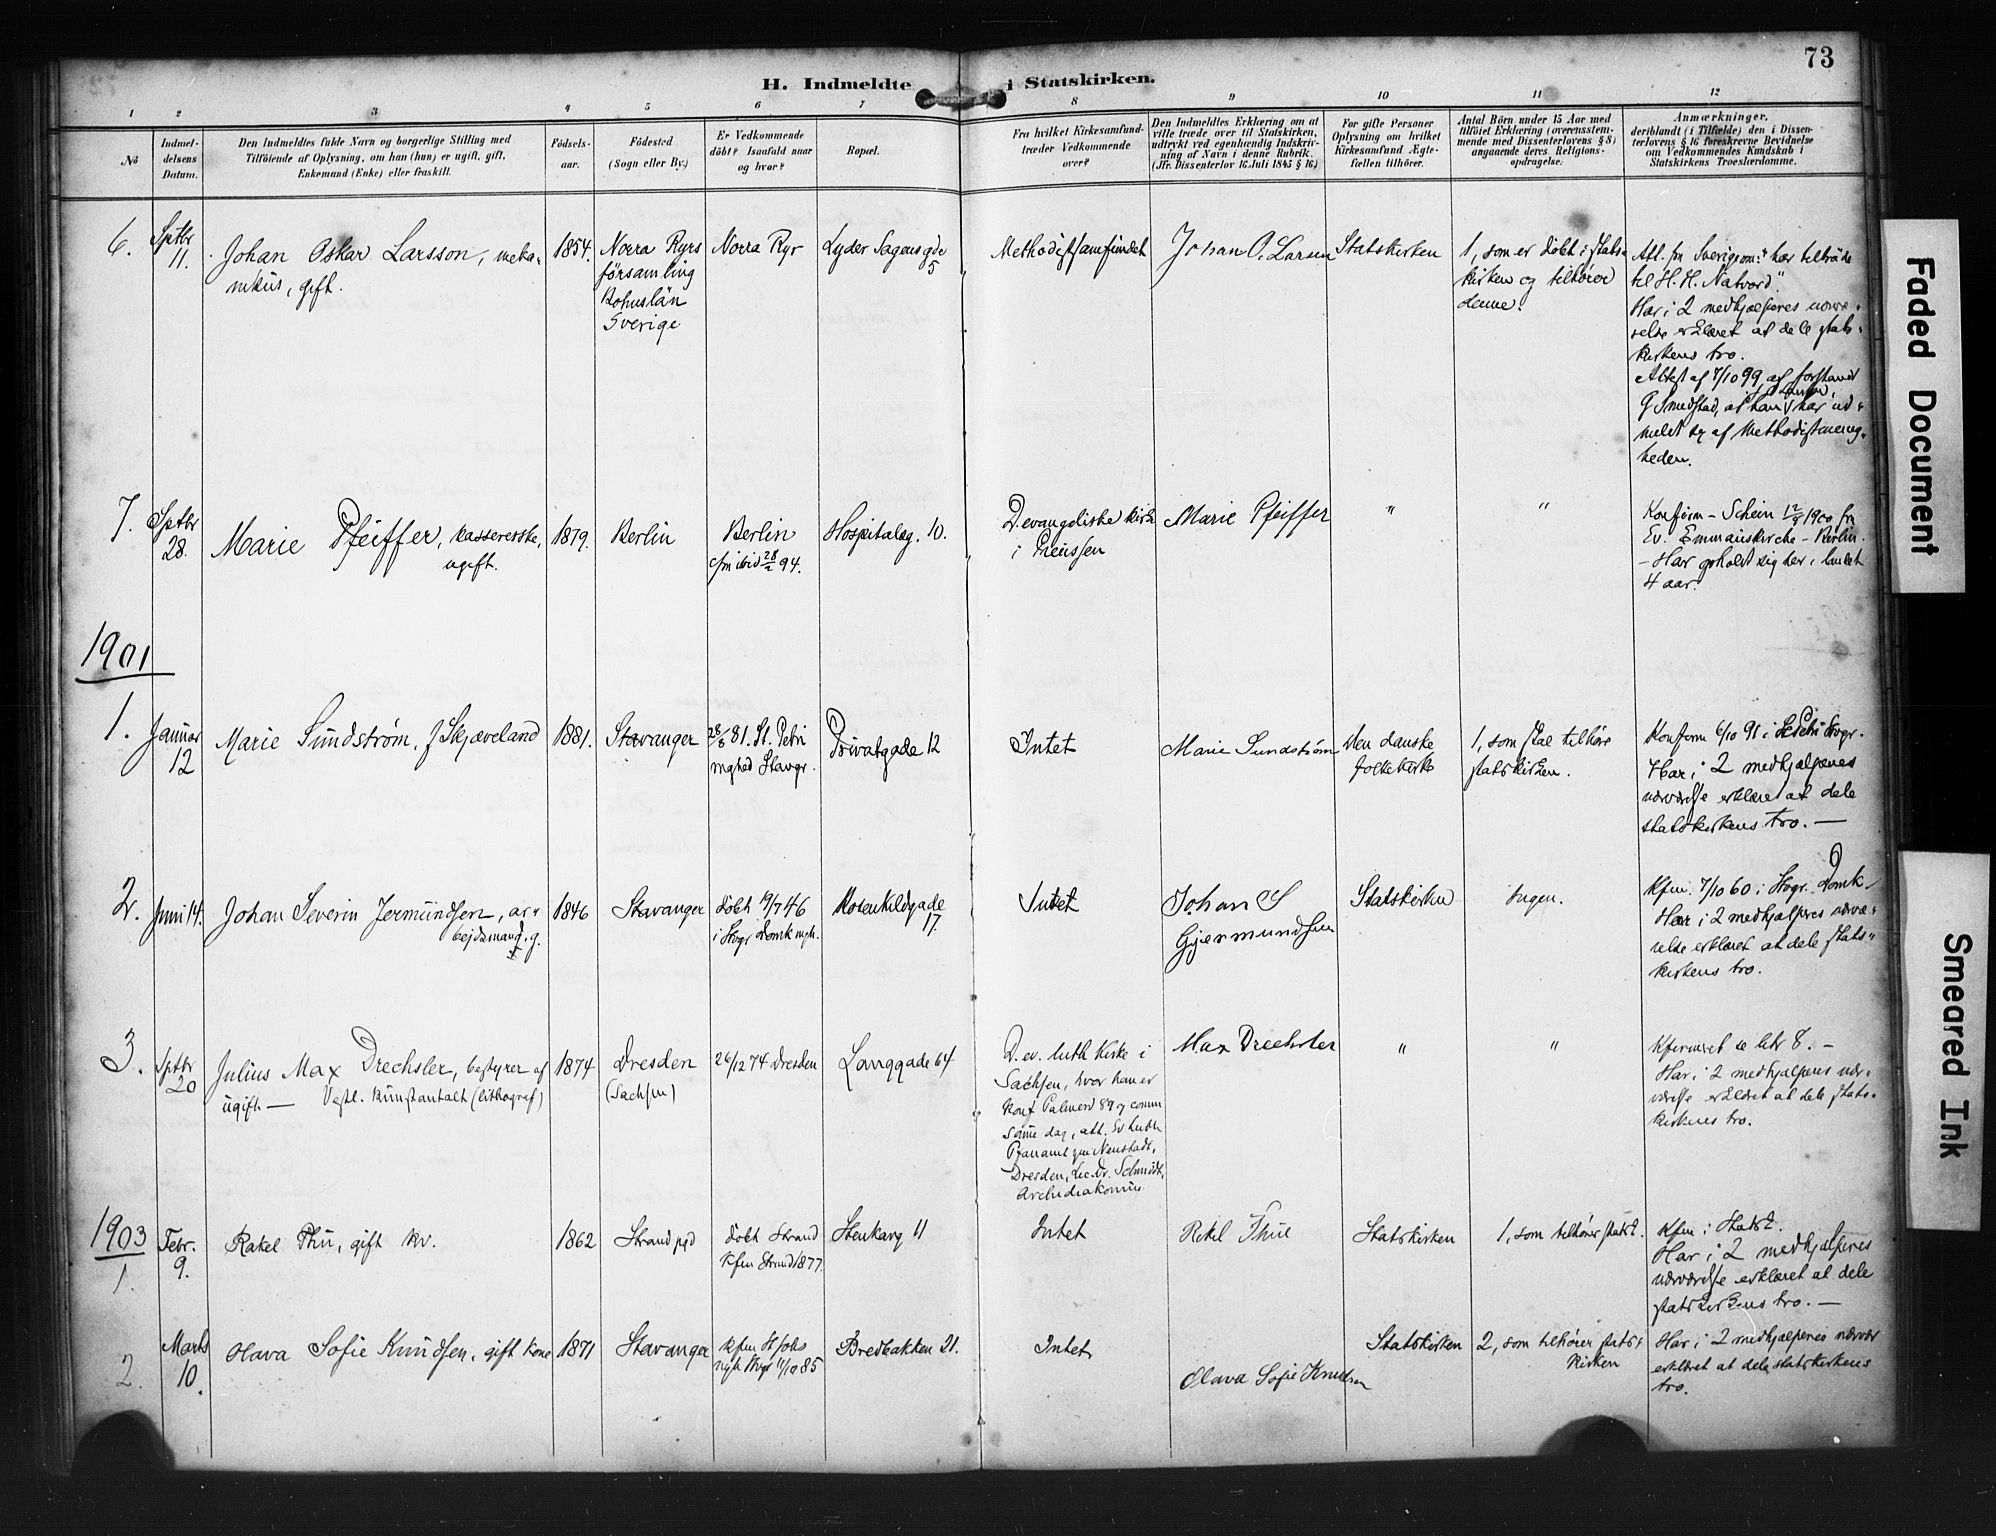 73
H. Indmeldte i Statskirken.
1 2 3 4 5 6 7 8 9 10 11 12
No
Indmel-
delsens
Datum.
Den Indmeldtes fulde Navn og borgerlige Stilling med
Tilföiende af Oplysning, om han (hun) er ugift, gift,
Enkemand (Enke) eller fraskilt.
Födsels-
aar.
Födested
(Sogn eller By.)
Er Vedkommende
döbt? Isaafald naar
og hvor?
Bopæl.
Fra hvilket Kirkesamfund
træder Vedkommende
over?
Den Indmeldtes Erklæring om at
ville træde over til Statskirken,
udtrykt ved egenhændig Indskriv-
ning af Navn i denne Rubrik.
(Jfr. Dissenterlov 16 Juli 1845 § 16.)
For gifte Personer
Oplysning om hvilket
Kirkesamfund Ægte-
fællen tilhörer.
Antal Börn under 15 Aar med
tilföiet Erklæring (overensstem-
mende med Dissenterlovens § 8)
angaaende deres Religions-
opdragelse.
Anmærkninger,
deriblandt (i Tilfælde) den i Dissen-
terlovens § 16 foreskrevne Bevidnelse
om Vedkommendes Kundskab i
Statskirkens Troeslærdomme.
6.
Sptbr
11.
Johan Oskar Larsson, meka-
nikus, gift.
1854.
Norra Ryrs
församling
Bohuslän
Sverige
Norra Ryr
Lyder Sagensgde
5
Methodistsamfundet
Johan O. Larsen
Statskirken
1, som er döbt i stats-
kirken og tilhører
denne.
Har i 2 medhjælperes nærvæ-
relse erklæret at dele stats-
kirkens tro.
Attest af 7/10 99 af forstand
G Smedstad, at han har ud-
meldt sig af Methodistmenig-
heden.
7.
Sptbr
28.
Marie Pfeiffer, kassererske,
ugift.
1879.
Berlin
Berlin
cfm ibid 28/2 94.
Hospitalsg. 10.
D. evangeliske kirke
i Preussen
Marie Pfeiffer
"
"
Konfirm-Schein 12/9 1900 fra
Ev. Emmauskirche - Berlin.
- Har opholdt sig her i landet
4 aar.
1901
1.
Januar
12
Marie Sundstrøm, f Skjæveland
1881.
Stavanger
28/8 81. St. Petri
mghed Stavgr.
Privatgade 12
Intet
Marie Sundstrøm
Den danske
folkekirke
1, som skal tilhøre
statskirken.
Konfirm 6/10 91 i St Petri Stvgr.
Har i 2 medhjælperes
nærværelse erklæret at dele
statskirkens tro. —
2.
Juni 14.
Johan Severin Jermundsen, ar-
bejdsmand, g.
1846
Stavanger
döbt 19/7 46
i Stvgr Domk mgh.
Rosenkildgade
17.
Intet
Johan S
Gjermundsen
Statskirken
Ingen.
Kfm. 7/10 60 i Stvgr. Domk-
Har i 2 medhjælperes nærvæ-
relse erklæret at dele stats-
kirkens tro.
3.
Sptbr
20
Julius Max Drechsler, bestyrer af
ugift — Vestl. kunstanstalt (lithograf)
1874
Dresden
(Sachsen)
26/12 74 Dresden
Langgade 64
D. ev. luth Kirke i
Sachsen, hvor han er
konf Palmesd 89 og comm
samme dag, att. Ev Luth
Pfarramt zu Neustadt,
Dresden, Lic. Dr. Schmidt,
Archidiakonus
Max Drechsler
"
"
Kfirmeret se litr 8. -
Har i 2 medhjælperes nær-
værelse erklæret at dele stats-
kirkens tro.
1903
1.
Febr.
9.
Rakel Thu, gift kv.
1862
Strand pgd
döbt Strand
Kfm Strand 1877.
Stenkarg 11
Intet
Statskirken
1, som tilhører statsk.
Kfm i Statsk.
Har i 2 medhjælperes
nærværelse erklæret at dele
statskirkens tro. —
2.
Marts
10.
Olava Sofie Knudsen, gift kone
1871
Stavanger
Kfm St Joh
mgh Stvgr 11/10 85
Bredbakken 21.
Intet
Olava Sofie Knudsen
Statskirken
2, som tilhører stats-
kirken
Har i 2 medhjælperes nærvær
erklæret at dele statskirkens
tro.
Faded Document
Smeared Ink